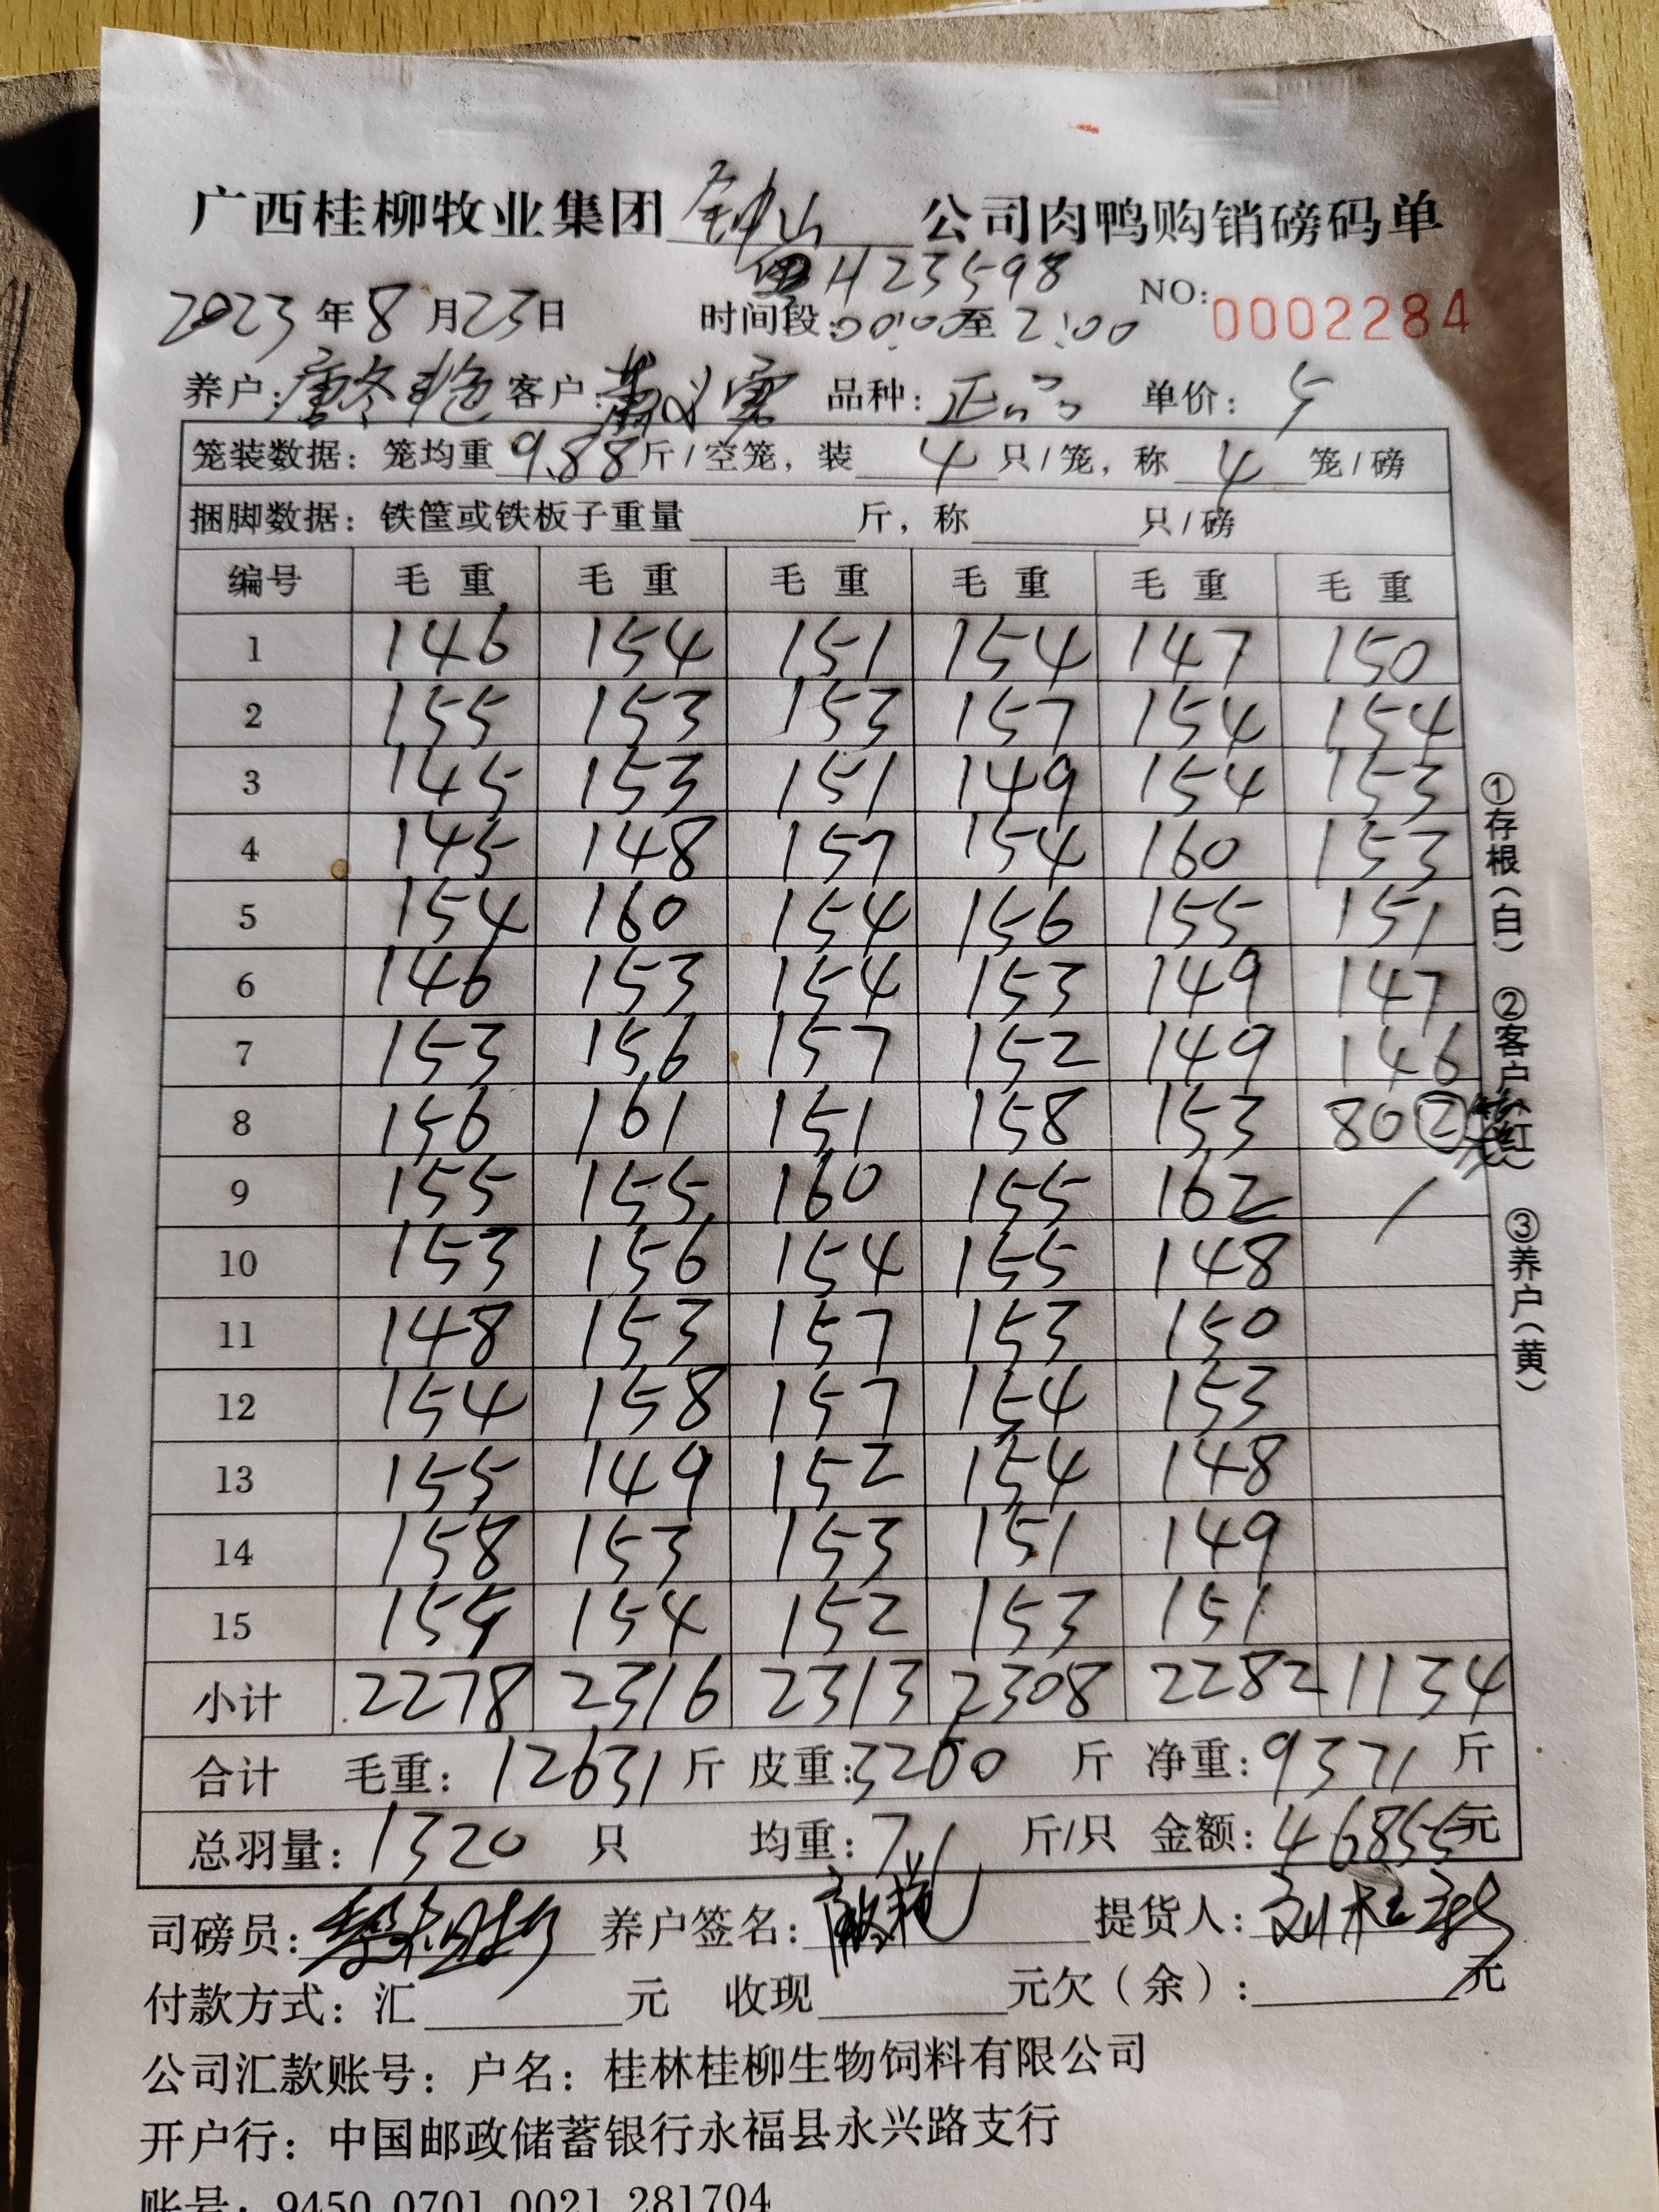 广西桂柳牧业集团 钟山 公司肉鸭购销磅码单
H23598
2023年8月23日 时间段:00:00至2:00 NO:0002284
养户:唐冬艳 客户: 品种:正品 单价:5
笼装数据:笼均重9.88斤/空笼,装4只/笼,称4笼/磅
捆脚数据:铁筐或铁板子重量 斤,称 只/磅
编号 毛重 毛重 毛重 毛重 毛重 毛重
1 146 154 151 154 147 150
2 155 153 153 157 154 154
3 145 153 151 149 154 153
4 145 148 157 154 160 153
5 154 160 154 156 155 151
6 146 153 154 153 149 147
7 153 156 157 152 149 146
8 156 161 151 158 153 80②
9 155 155 160 155 162 /
10 153 156 154 155 148
11 148 153 157 153 150
12 154 158 157 154 153
13 155 149 152 154 148
14 158 153 153 151 149
15 155 154 152 153 151
小计 2278 2316 2313 2308 2282 1134
合计 毛重:12631斤 皮重:3260斤 净重:9371斤
总羽量:1320只 均重:7.1斤/只 金额:46855元
司磅员: 养户签名: 提货人:
付款方式:汇 元 收现 元欠(余): 元
公司汇款账号:户名:桂林桂柳生物饲料有限公司
开户行:中国邮政储蓄银行永福县永兴路支行
账号:9450 0701 0021 281704
①存根(白) ②客户(红) ③养户(黄)